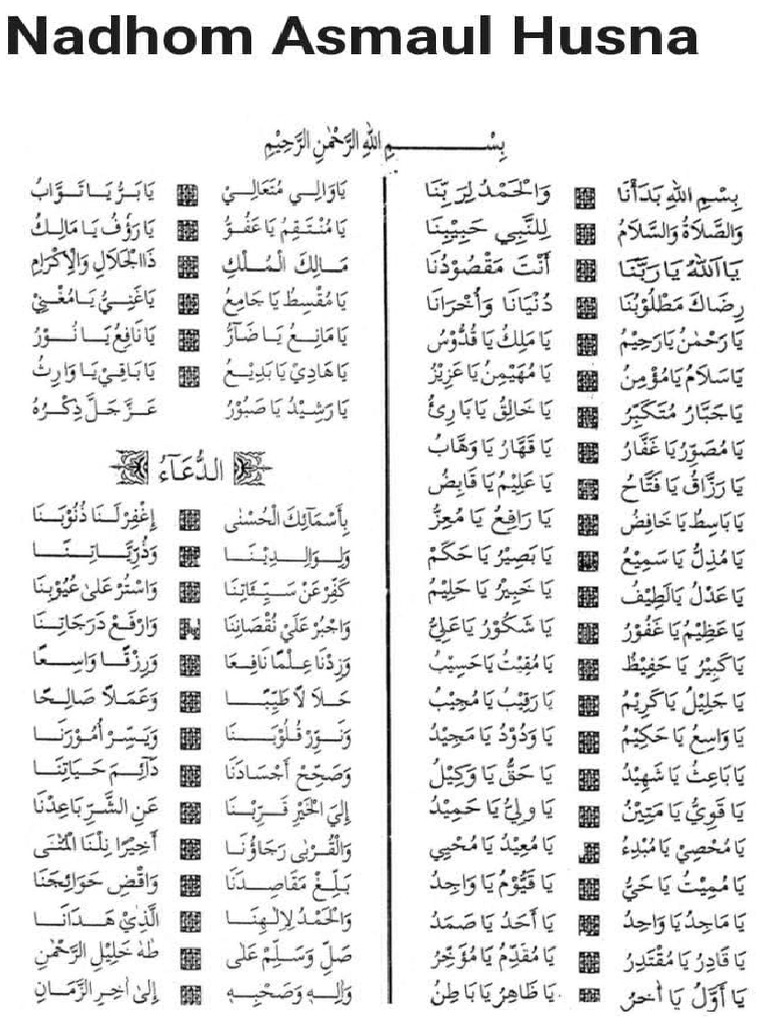 Nadhom Asmaul Husna
بِسْمِ اللهِ الرَّحْمٰنِ الرَّحِيْمِ
بِسْمِ اللهِ بَدَأْنَا وَالْحَمْدُ لِرَبِّنَا
وَالصَّلَاةُ وَالسَّلَامُ لِلنَّبِي حَبِيْبِنَا
يَا اَللهُ يَا رَبَّنَا أَنْتَ مَقْصُوْدُنَا
رِضَاكَ مَطْلُوْبُنَا دُنْيَانَا وَأُخْرَانَا
يَا رَحْمٰنُ يَا رَحِيْمُ يَا مَلِكُ يَا قُدُّوْسُ
يَا سَلَامُ يَا مُؤْمِنُ يَا مُهَيْمِنُ يَا عَزِيْزُ
يَا جَبَّارُ مُتَكَبِّرُ يَا خَالِقُ يَا بَارِئُ
يَا مُصَوِّرُ يَا غَفَّارُ يَا قَهَّارُ يَا وَهَّابُ
يَا رَزَّاقُ يَا فَتَّاحُ يَا عَلِيْمُ يَا قَابِضُ
يَا بَاسِطُ يَا خَافِضُ يَا رَافِعُ يَا مُعِزُّ
يَا مُذِلُّ يَا سَمِيْعُ يَا بَصِيْرُ يَا حَكَمْ
يَا عَدْلُ يَا لَطِيْفُ يَا خَبِيْرُ يَا حَلِيْمُ
يَا عَظِيْمُ يَا غَفُوْرُ يَا شَكُوْرُ يَا عَلِيُّ
يَا كَبِيْرُ يَا حَفِيْظُ يَا مُقِيْتُ يَا حَسِيْبُ
يَا جَلِيْلُ يَا كَرِيْمُ يَا رَقِيْبُ يَا مُجِيْبُ
يَا وَاسِعُ يَا حَكِيْمُ يَا وَدُوْدُ يَا مَجِيْدُ
يَا بَاعِثُ يَا شَهِيْدُ يَا حَقُّ يَا وَكِيْلُ
يَا قَوِيُّ يَا مَتِيْنُ يَا وَلِيُّ يَا حَمِيْدُ
يَا مُحْصِيْ يَا مُبْدِءُ يَا مُعِيْدُ يَا مُحْيِي
يَا مُمِيْتُ يَا حَيُّ يَا قَيُّوْمُ يَا وَاجِدُ
يَا مَاجِدُ يَا وَاحِدُ يَا أَحَدُ يَا صَمَدُ
يَا قَادِرُ يَا مُقْتَدِرُ يَا مُقَدِّمُ يَا مُؤَخِّرُ
يَا أَوَّلُ يَا اٰخِرُ يَا ظَاهِرُ يَا بَاطِنُ
يَا وَالِي مُتَعَالِيْ يَا بَرُّ يَا تَوَّابُ
يَا مُنْتَقِمُ يَا عَفُوُّ يَا رَؤُفُ يَا مَالِكُ
مَالِكَ الْمُلْكِ ذَاالْجَلَالِ وَالْإِكْرَامِ
يَا مُقْسِطُ يَا جَامِعُ يَا غَنِيُّ يَا مُغْنِيْ
يَا مَانِعُ يَا ضَآرُّ يَا نَافِعُ يَا نُوْرُ
يَا هَادِيْ يَا بَدِيْعُ يَا بَاقِيْ يَا وَارِثُ
يَا رَشِيْدُ يَا صَبُوْرُ عَزَّ جَلَّ ذِكْرُهُ
الدُّعَآءُ
بِأَسْمَائِكَ الْحُسْنٰى إِغْفِرْ لَنَا ذُنُوْبَنَا
وَلِوَالِدِيْنَا وَذُرِّيَّاتِنَا
كَفِّرْ عَنْ سَيِّئَاتِنَا وَاسْتُرْ عَلٰى عُيُوْبِنَا
وَاجْبُرْ عَلٰى نُقْصَانِنَا وَارْفَعْ دَرَجَاتِنَا
وَزِدْنَا عِلْمًا نَافِعًا وَرِزْقًا وَاسِعًا
حَلَالًا طَيِّبًا وَعَمَلًا صَالِحًا
وَنَوِّرْ قُلُوْبَنَا وَيَسِّرْ أُمُوْرَنَا
وَصَحِّحْ أَجْسَادَنَا دَآئِمَ حَيَاتِنَا
إِلَى الْخَيْرِ قَرِّبْنَا عَنِ الشَّرِّ بَاعِدْنَا
وَالْقُرْبٰى رَجَاؤُنَا أَخِيْرًا نِلْنَا الْمُنَى
بَلِّغْ مَقَاصِدَنَا وَاقْضِ حَوَائِجَنَا
وَالْحَمْدُ لِإِلٰهِنَا الَّذِيْ هَدَانَا
صَلِّ وَسَلِّمْ عَلٰى طٰهٰ خَلِيْلِ الرَّحْمٰنِ
وَاٰلِهٖ وَصَحْبِهٖ إِلٰى اٰخِرِ الزَّمَانِ